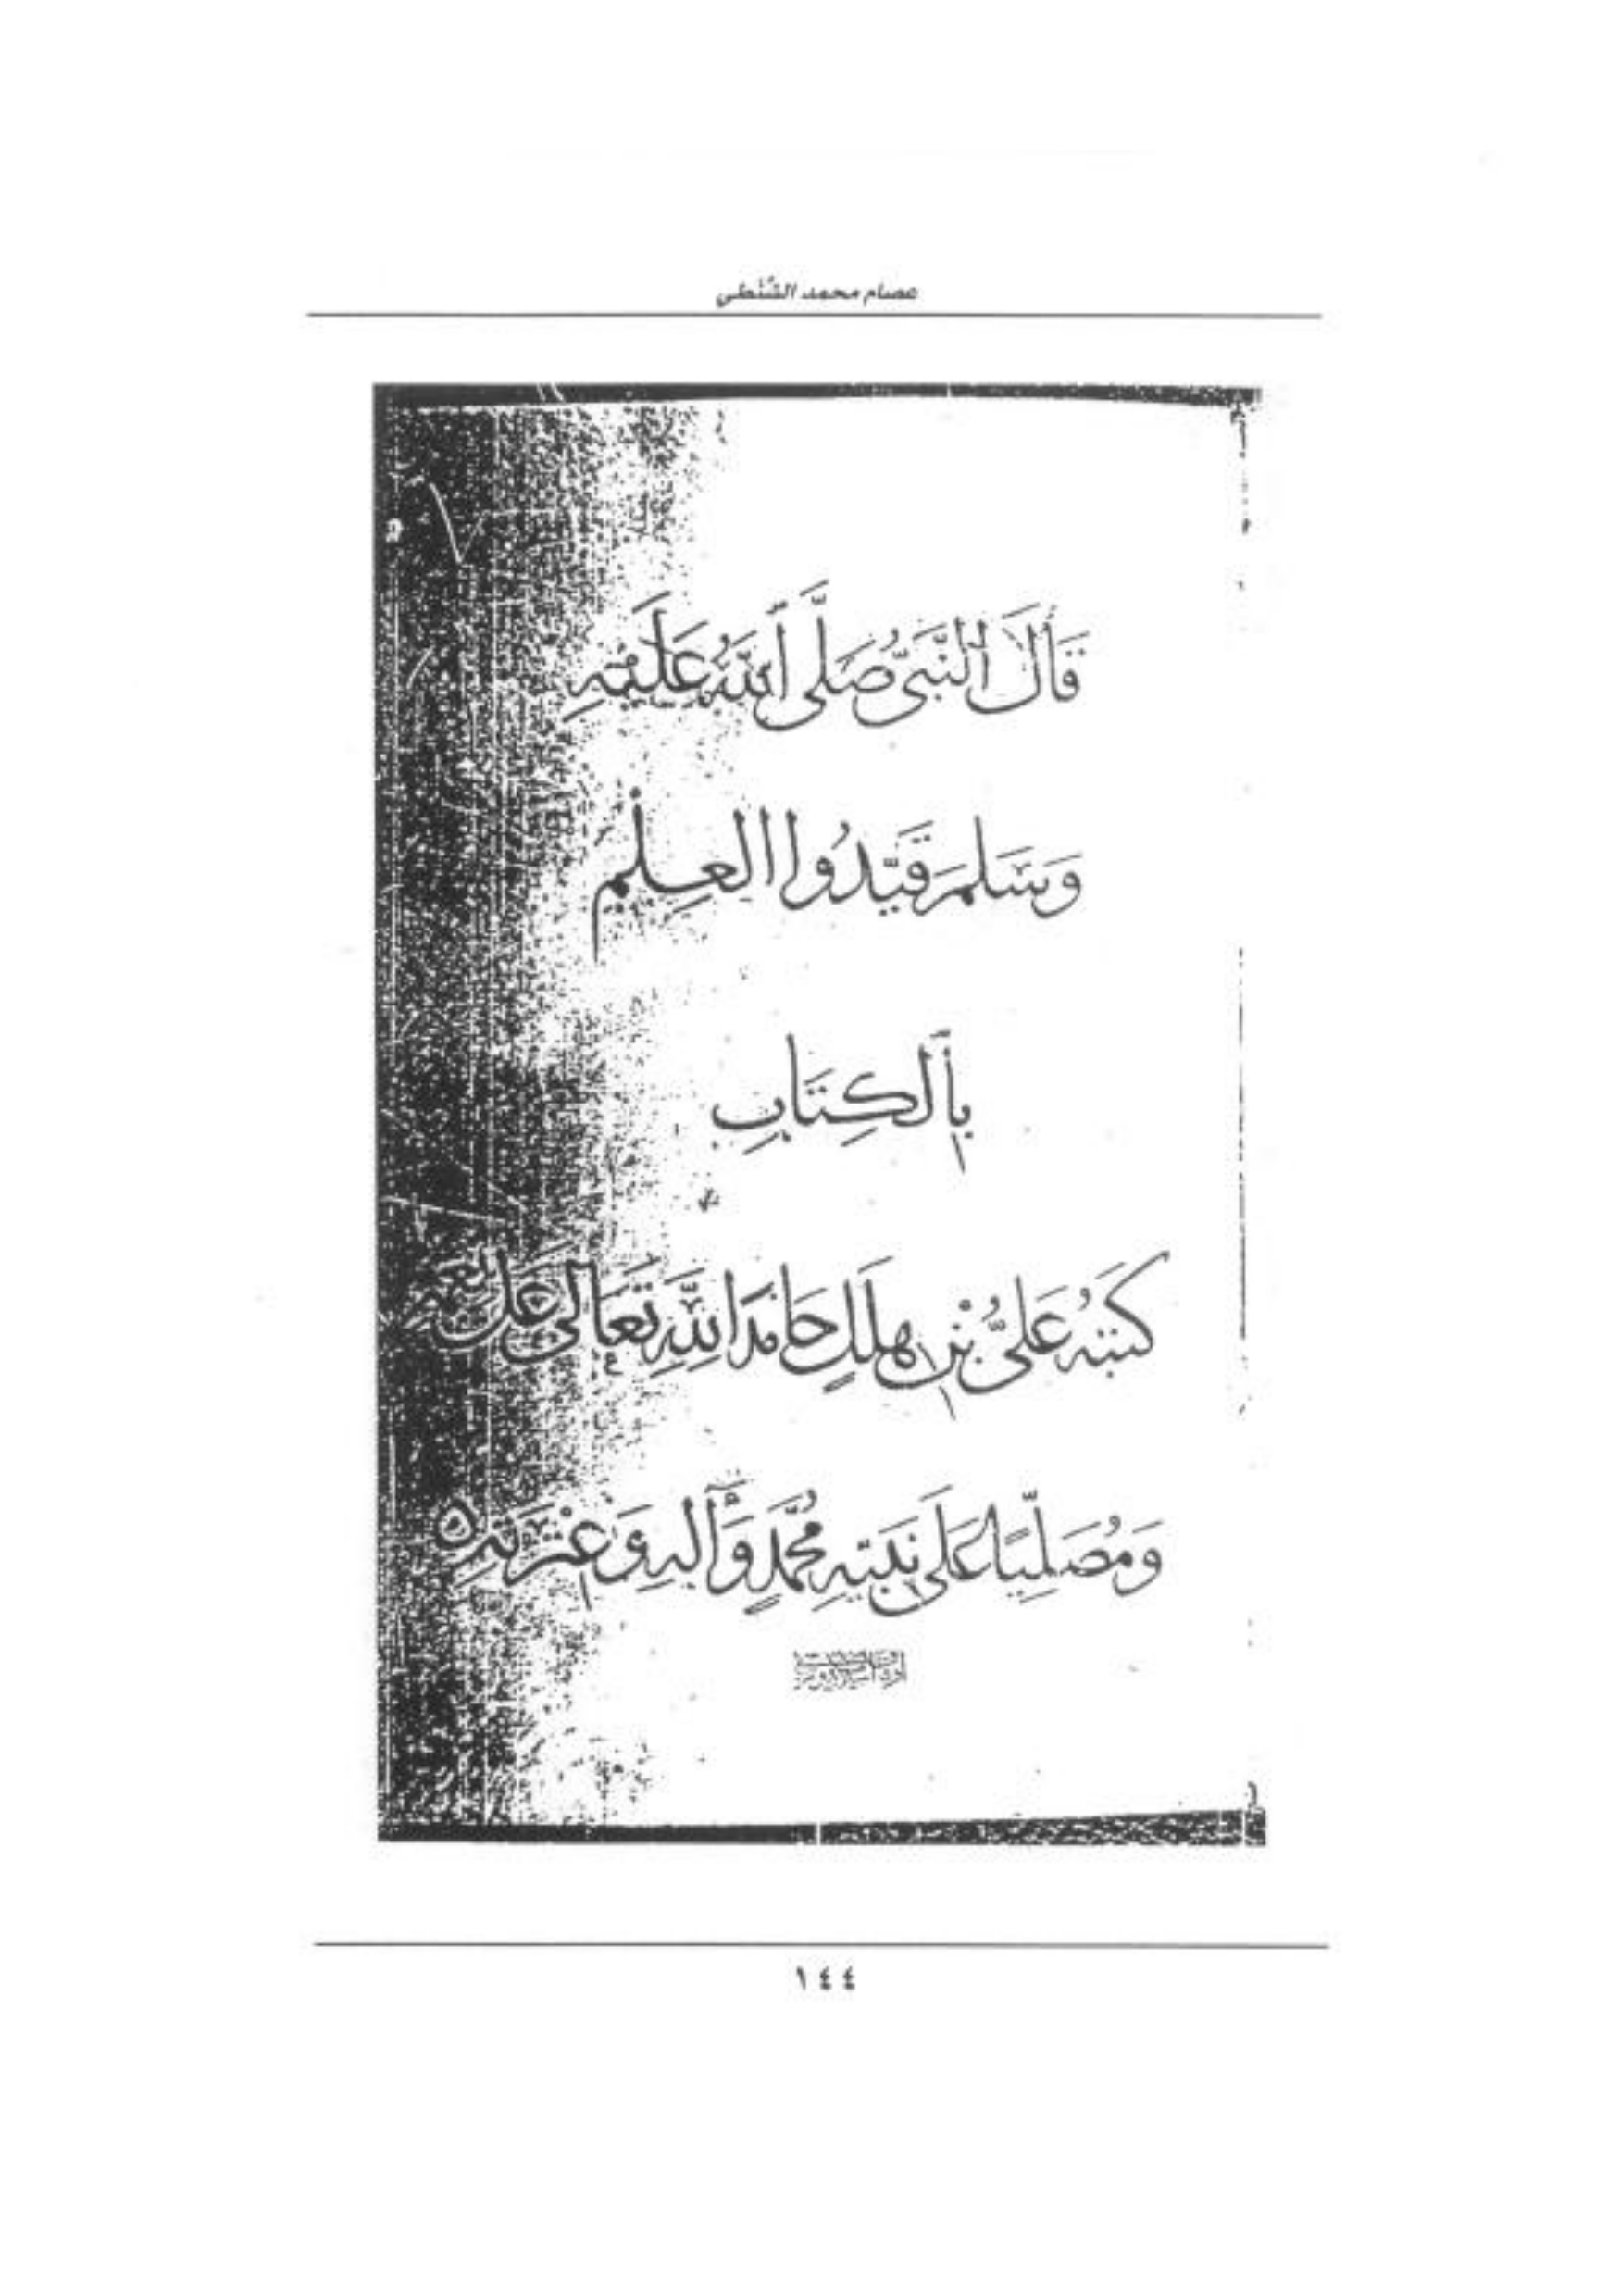 عصام محمد الشنطي
قَالَ النَّبِيُّ صَلَّى اللهُ عَلَيْهِ
وَسَلَّمَ قَيِّدُوا العِلْمَ
بِالْكِتَابِ
كَتَبَهُ عَلِيُّ بْنُ هِلَلٍ حَامِدًا لِلَّهِ تَعَالَى عَلَى نِعَمِهِ
وَمُصَلِّيًا عَلَى نَبِيِّهِ مُحَمَّدٍ وَآلِهِ وَعِتْرَتِهِ
١٤٤